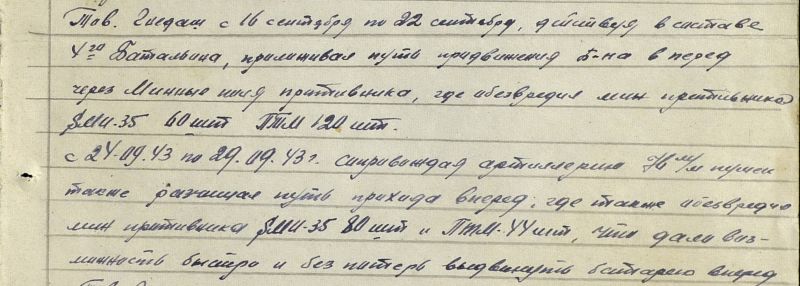 Тов. Гнедаш с 16 сентября по 22 сентября, действуя в составе
4го Батальона, проложивая путь продвижения б-на вперед
через Минные поля противника, где обезвредил мин противника
SМИ-35 60 шт ПТМ 120 шт.
с 24.09.43 по 29.09.43 г. Сопровождая артиллерию 76 м/м пушек
также расчищая путь прохода вперед, где также обезвредил
мин противника SМИ-35 80 шт и ПТМ-44 шт, что дало воз-
можность быстро и без потерь выдвинуть батарею вперед